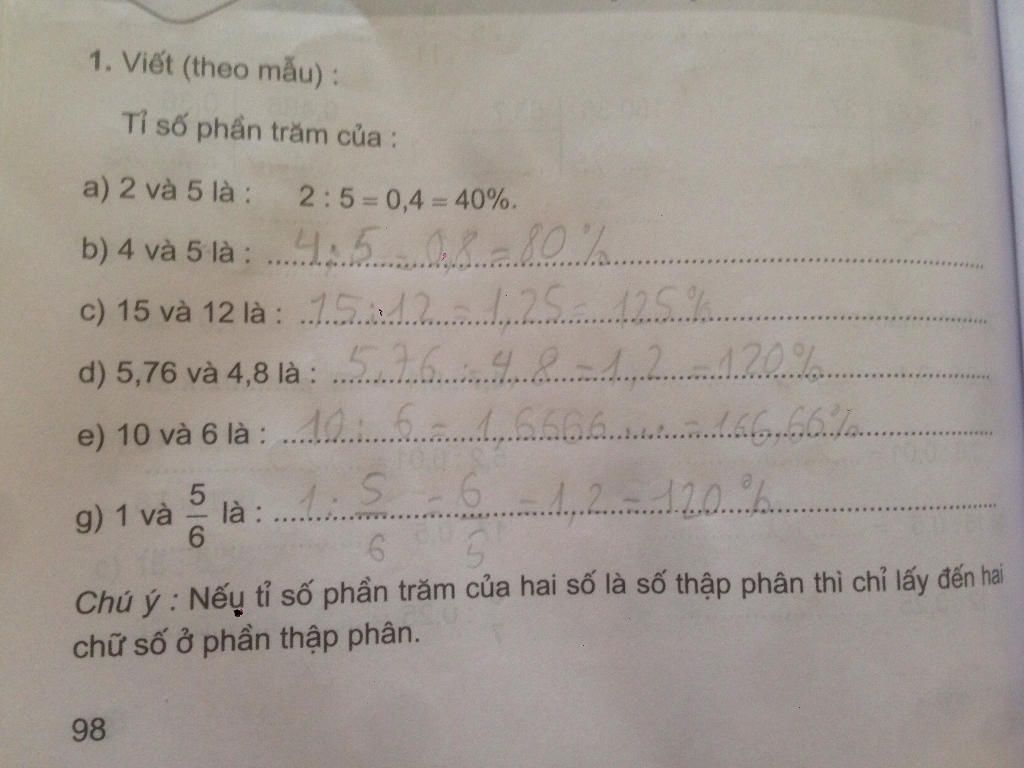 1. Viết (theo mẫu) :
Tỉ số phần trăm của :
a) 2 và 5 là : 2 : 5 = 0,4 = 40%.
b) 4 và 5 là : 4 : 5 = 0,8 = 80%
c) 15 và 12 là : 15 : 12 = 1,25 = 125%
d) 5,76 và 4,8 là : 5,76 : 4,8 = 1,2 = 120%
e) 10 và 6 là : 10 : 6 = 1,6666... = 166,66%
g) 1 và 5/6 là : 1 : 5/6 = 6/5 = 1,2 = 120%
Chú ý : Nếu tỉ số phần trăm của hai số là số thập phân thì chỉ lấy đến hai
chữ số ở phần thập phân.
98